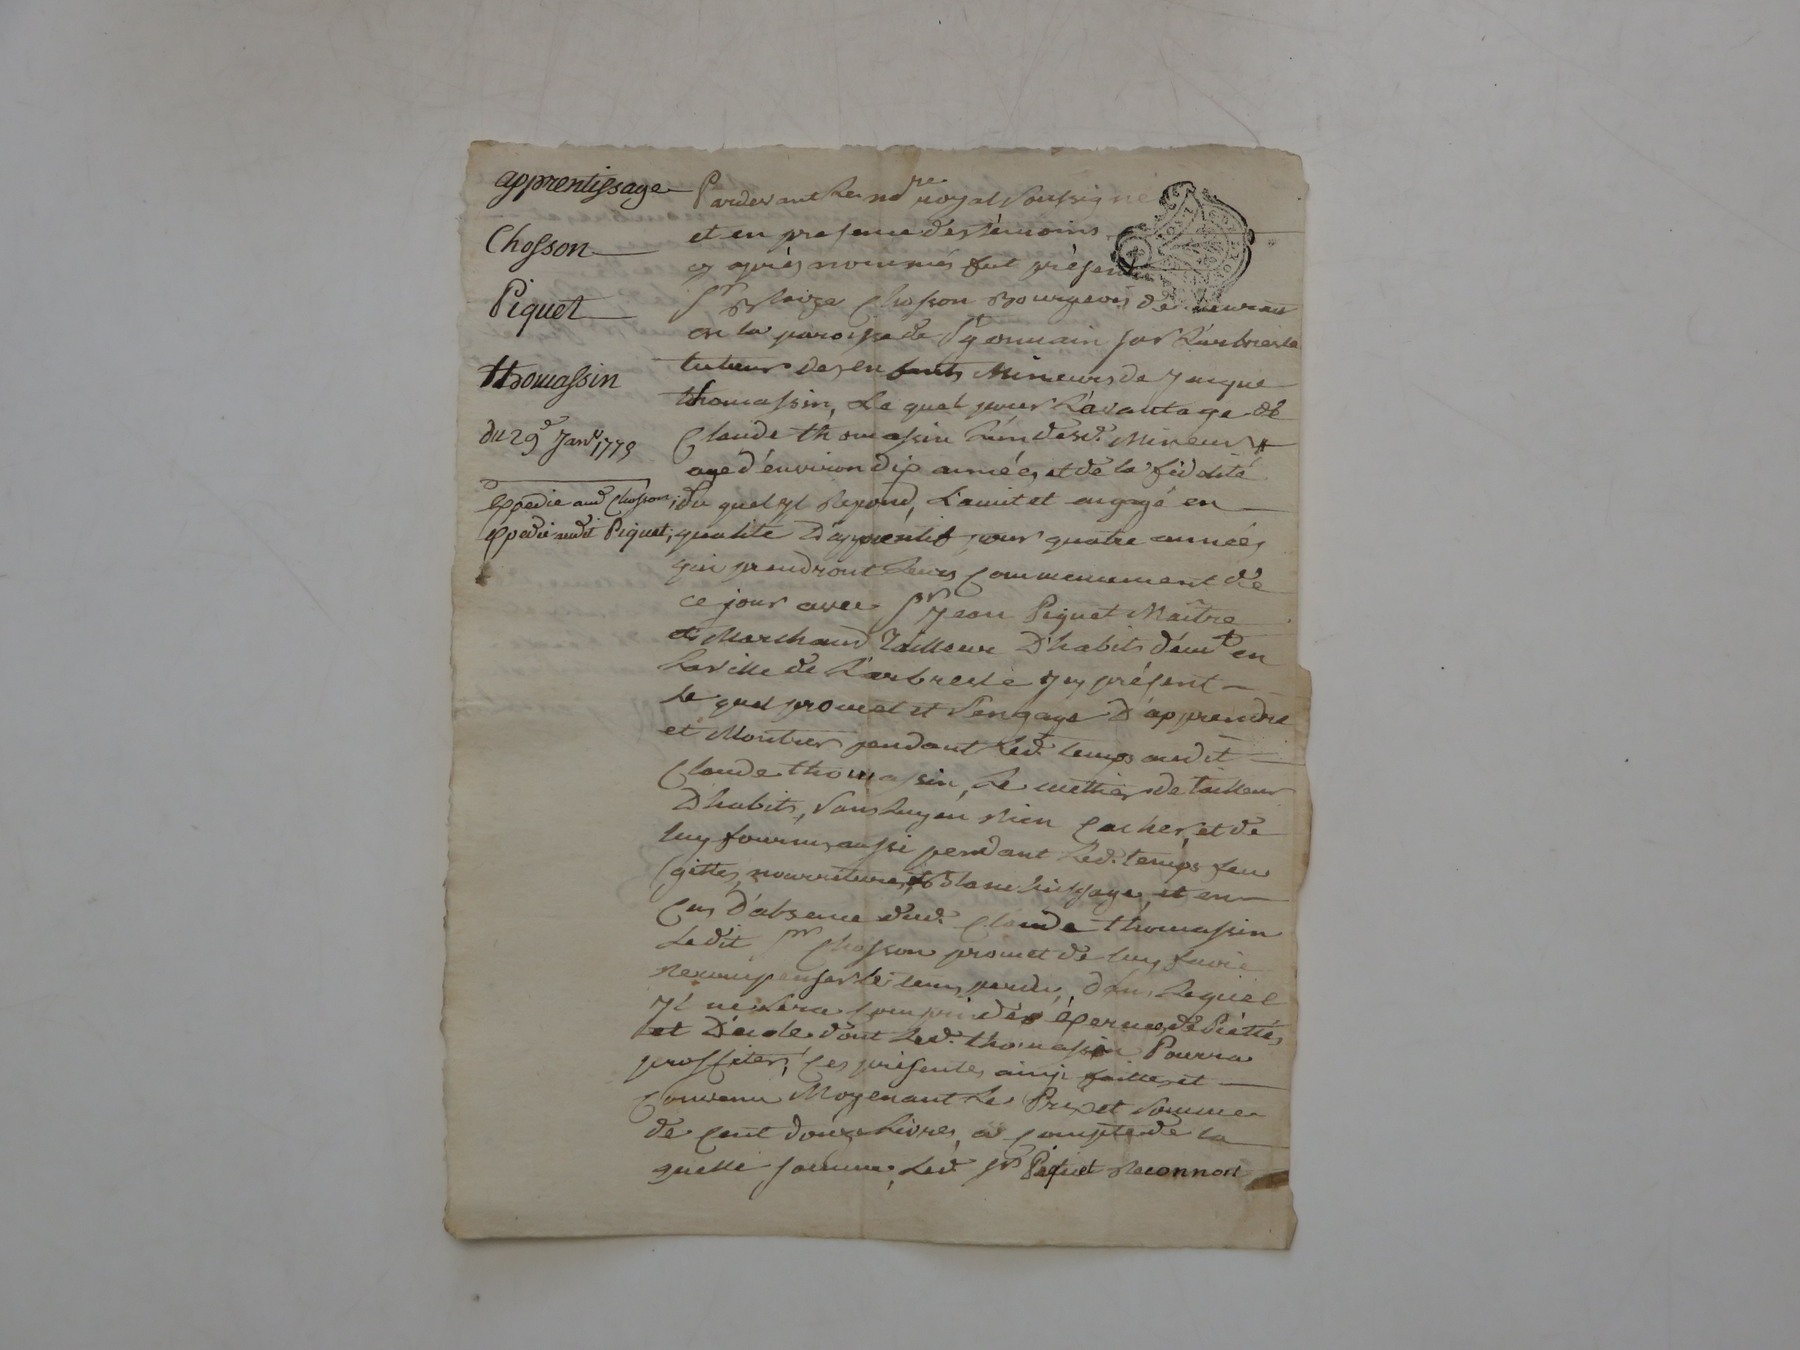 apprentissage
Chosson
Piquet
thomassin
du 29e Janv. 1779
expedie aud Chosson;
expedie audit Piquet;
Pardevant Le no.re royal soussigné
et en presence des témoins
cy après nommés fut présent
Sr Chosson Bourgeois de
en la paroisse de St germain sur L'arbresle
tuteur des enfants Mineurs de Jacque
thomassin, Le quel pour L'avantage de
Claude thomassin L'un desd. Mineurs
age d'environ dix années, et de la fidelité
du quel yl Repond, L'a mit et engagé en
qualité D'apprentif pour quatre années
qui prendront Leurs Commencement de
ce jour avec Sr Jean Piquet Maître
et Marchand Tailleur D'habits dem.t en
La ville de L'arbresle Icy présent
Le quel promet et s'engage D'apprendre
et Montrer pendant Led. temps audit
Claude thomassin, Le mettier de tailleur
D'habits, sans luy en Rien Cacher, et de
luy fournir aussi pendant Led. temps feu
gitte, nourriture, et Blanchissage, et en
Cas D'absence dud. Claude thomassin
Ledit Sr Chosson promet de luy faire
recompenser Le tems perdu, dans Lequel
yl ne sera compris des
et D'école dont Led. thomassin Pourra
proffiter, Ces présentes ainsi faittes et
Convenu Moyenant Le Prix et somme
de Cent douze Livres, a Compte de la
quelle somme, Led Sr Piquet Reconnoit